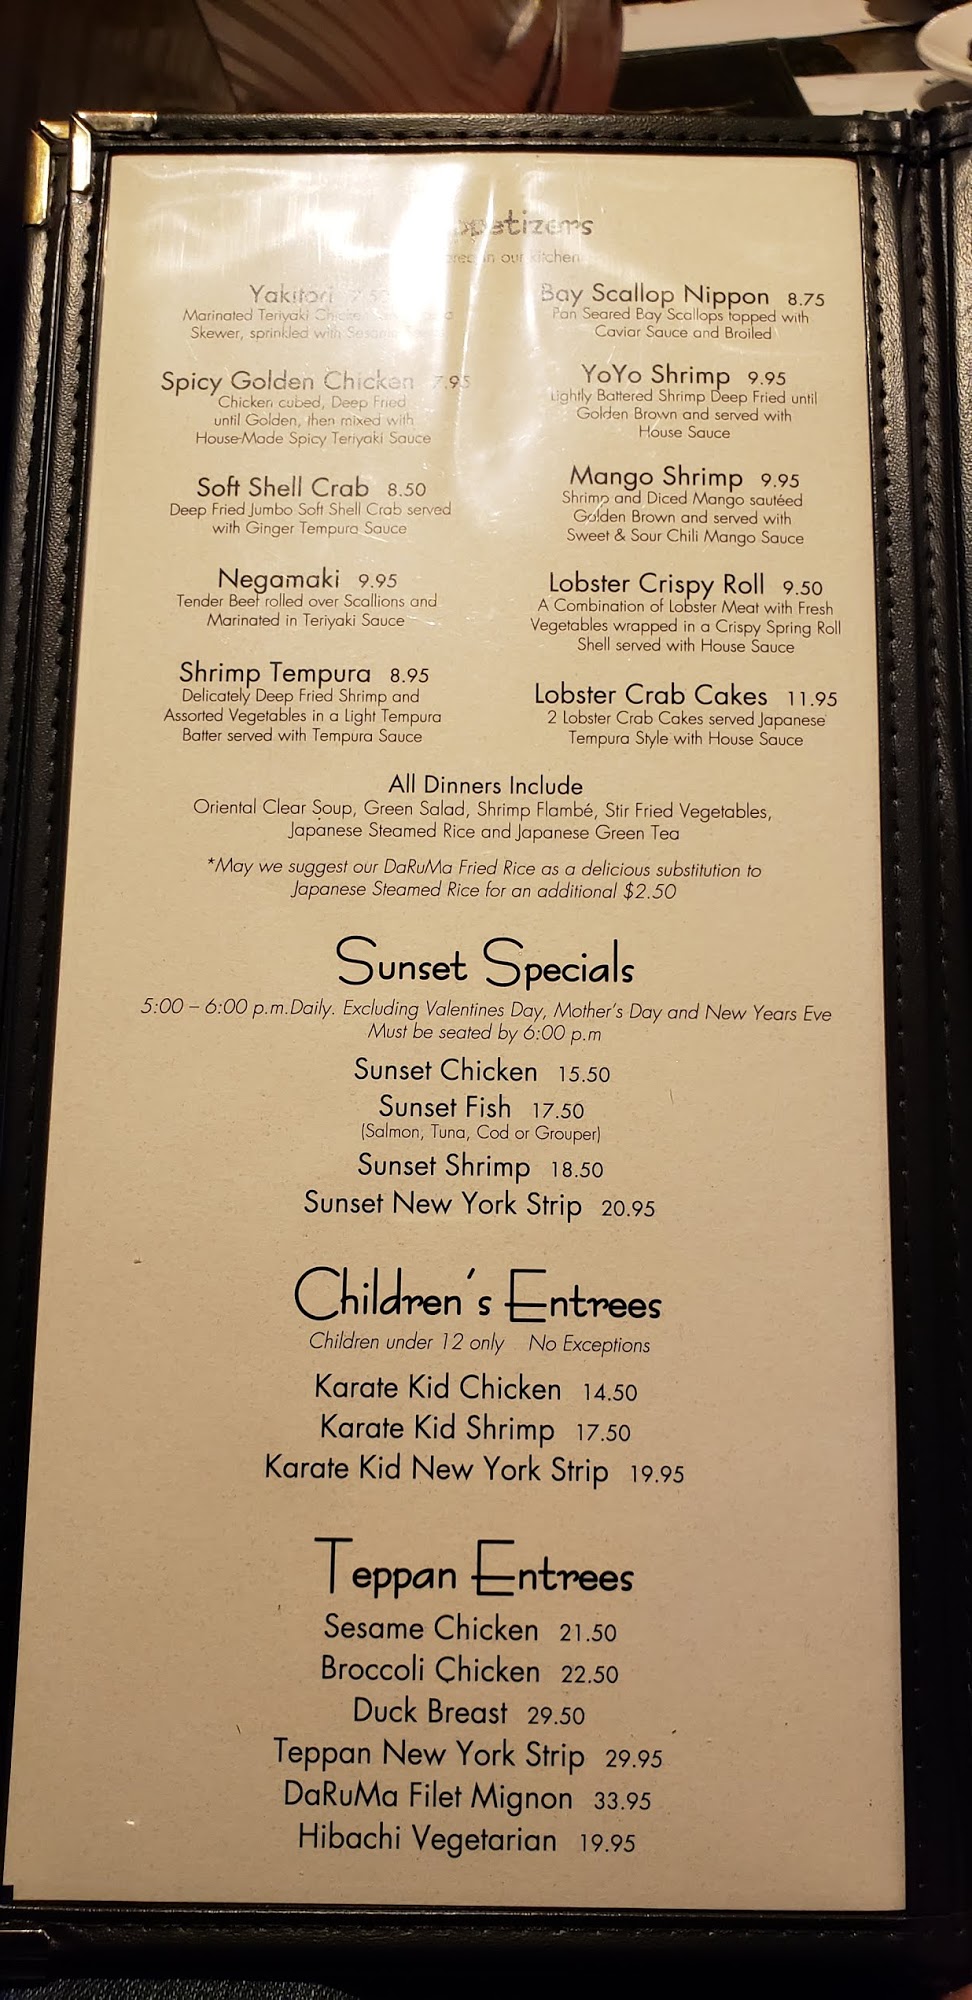 in our kitchen
Yakitori
Marinated Teriyaki
Skewer, sprinkled with
Spicy Golden Chicken 7.95
Chicken cubed, Deep Fried
until Golden, then mixed with
House-Made Spicy Teriyaki Sauce
Soft Shell Crab 8.50
Deep Fried Jumbo Soft Shell Crab served
with Ginger Tempura Sauce
Negamaki 9.95
Tender Beef rolled over Scallions and
Marinated in Teriyaki Sauce
Shrimp Tempura 8.95
Delicately Deep Fried Shrimp and
Assorted Vegetables in a Light Tempura
Batter served with Tempura Sauce
Bay Scallop Nippon 8.75
Pan Seared Bay Scallops topped with
Caviar Sauce and Broiled
YoYo Shrimp 9.95
Lightly Battered Shrimp Deep Fried until
Golden Brown and served with
House Sauce
Mango Shrimp 9.95
Shrimp and Diced Mango sautéed
Golden Brown and served with
Sweet & Sour Chili Mango Sauce
Lobster Crispy Roll 9.50
A Combination of Lobster Meat with Fresh
Vegetables wrapped in a Crispy Spring Roll
Shell served with House Sauce
Lobster Crab Cakes 11.95
2 Lobster Crab Cakes served Japanese
Tempura Style with House Sauce
All Dinners Include
Oriental Clear Soup, Green Salad, Shrimp Flambé, Stir Fried Vegetables,
Japanese Steamed Rice and Japanese Green Tea
*May we suggest our DaRuMa Fried Rice as a delicious substitution to
Japanese Steamed Rice for an additional $2.50
Sunset Specials
5:00 – 6:00 p.m.Daily. Excluding Valentines Day, Mother's Day and New Years Eve
Must be seated by 6:00 p.m
Sunset Chicken 15.50
Sunset Fish 17.50
(Salmon, Tuna, Cod or Grouper)
Sunset Shrimp 18.50
Sunset New York Strip 20.95
Children's Entrees
Children under 12 only No Exceptions
Karate Kid Chicken 14.50
Karate Kid Shrimp 17.50
Karate Kid New York Strip 19.95
Teppan Entrees
Sesame Chicken 21.50
Broccoli Chicken 22.50
Duck Breast 29.50
Teppan New York Strip 29.95
DaRuMa Filet Mignon 33.95
Hibachi Vegetarian 19.95